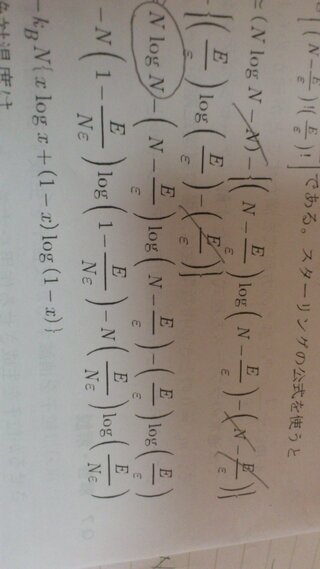 [(N−E/ε)!(E/ε)!] である。スターリングの公式を使うと
≈ (N log N − N) − {(N − E/ε) log (N − E/ε) − (N − E/ε)}
− {(E/ε) log (E/ε) − (E/ε)}
N log N − (N − E/ε) log (N − E/ε) − (E/ε) log (E/ε)
−N (1 − E/Nε) log (1 − E/Nε) − N (E/Nε) log (E/Nε)
−k_B N{x log x + (1−x) log (1−x)}